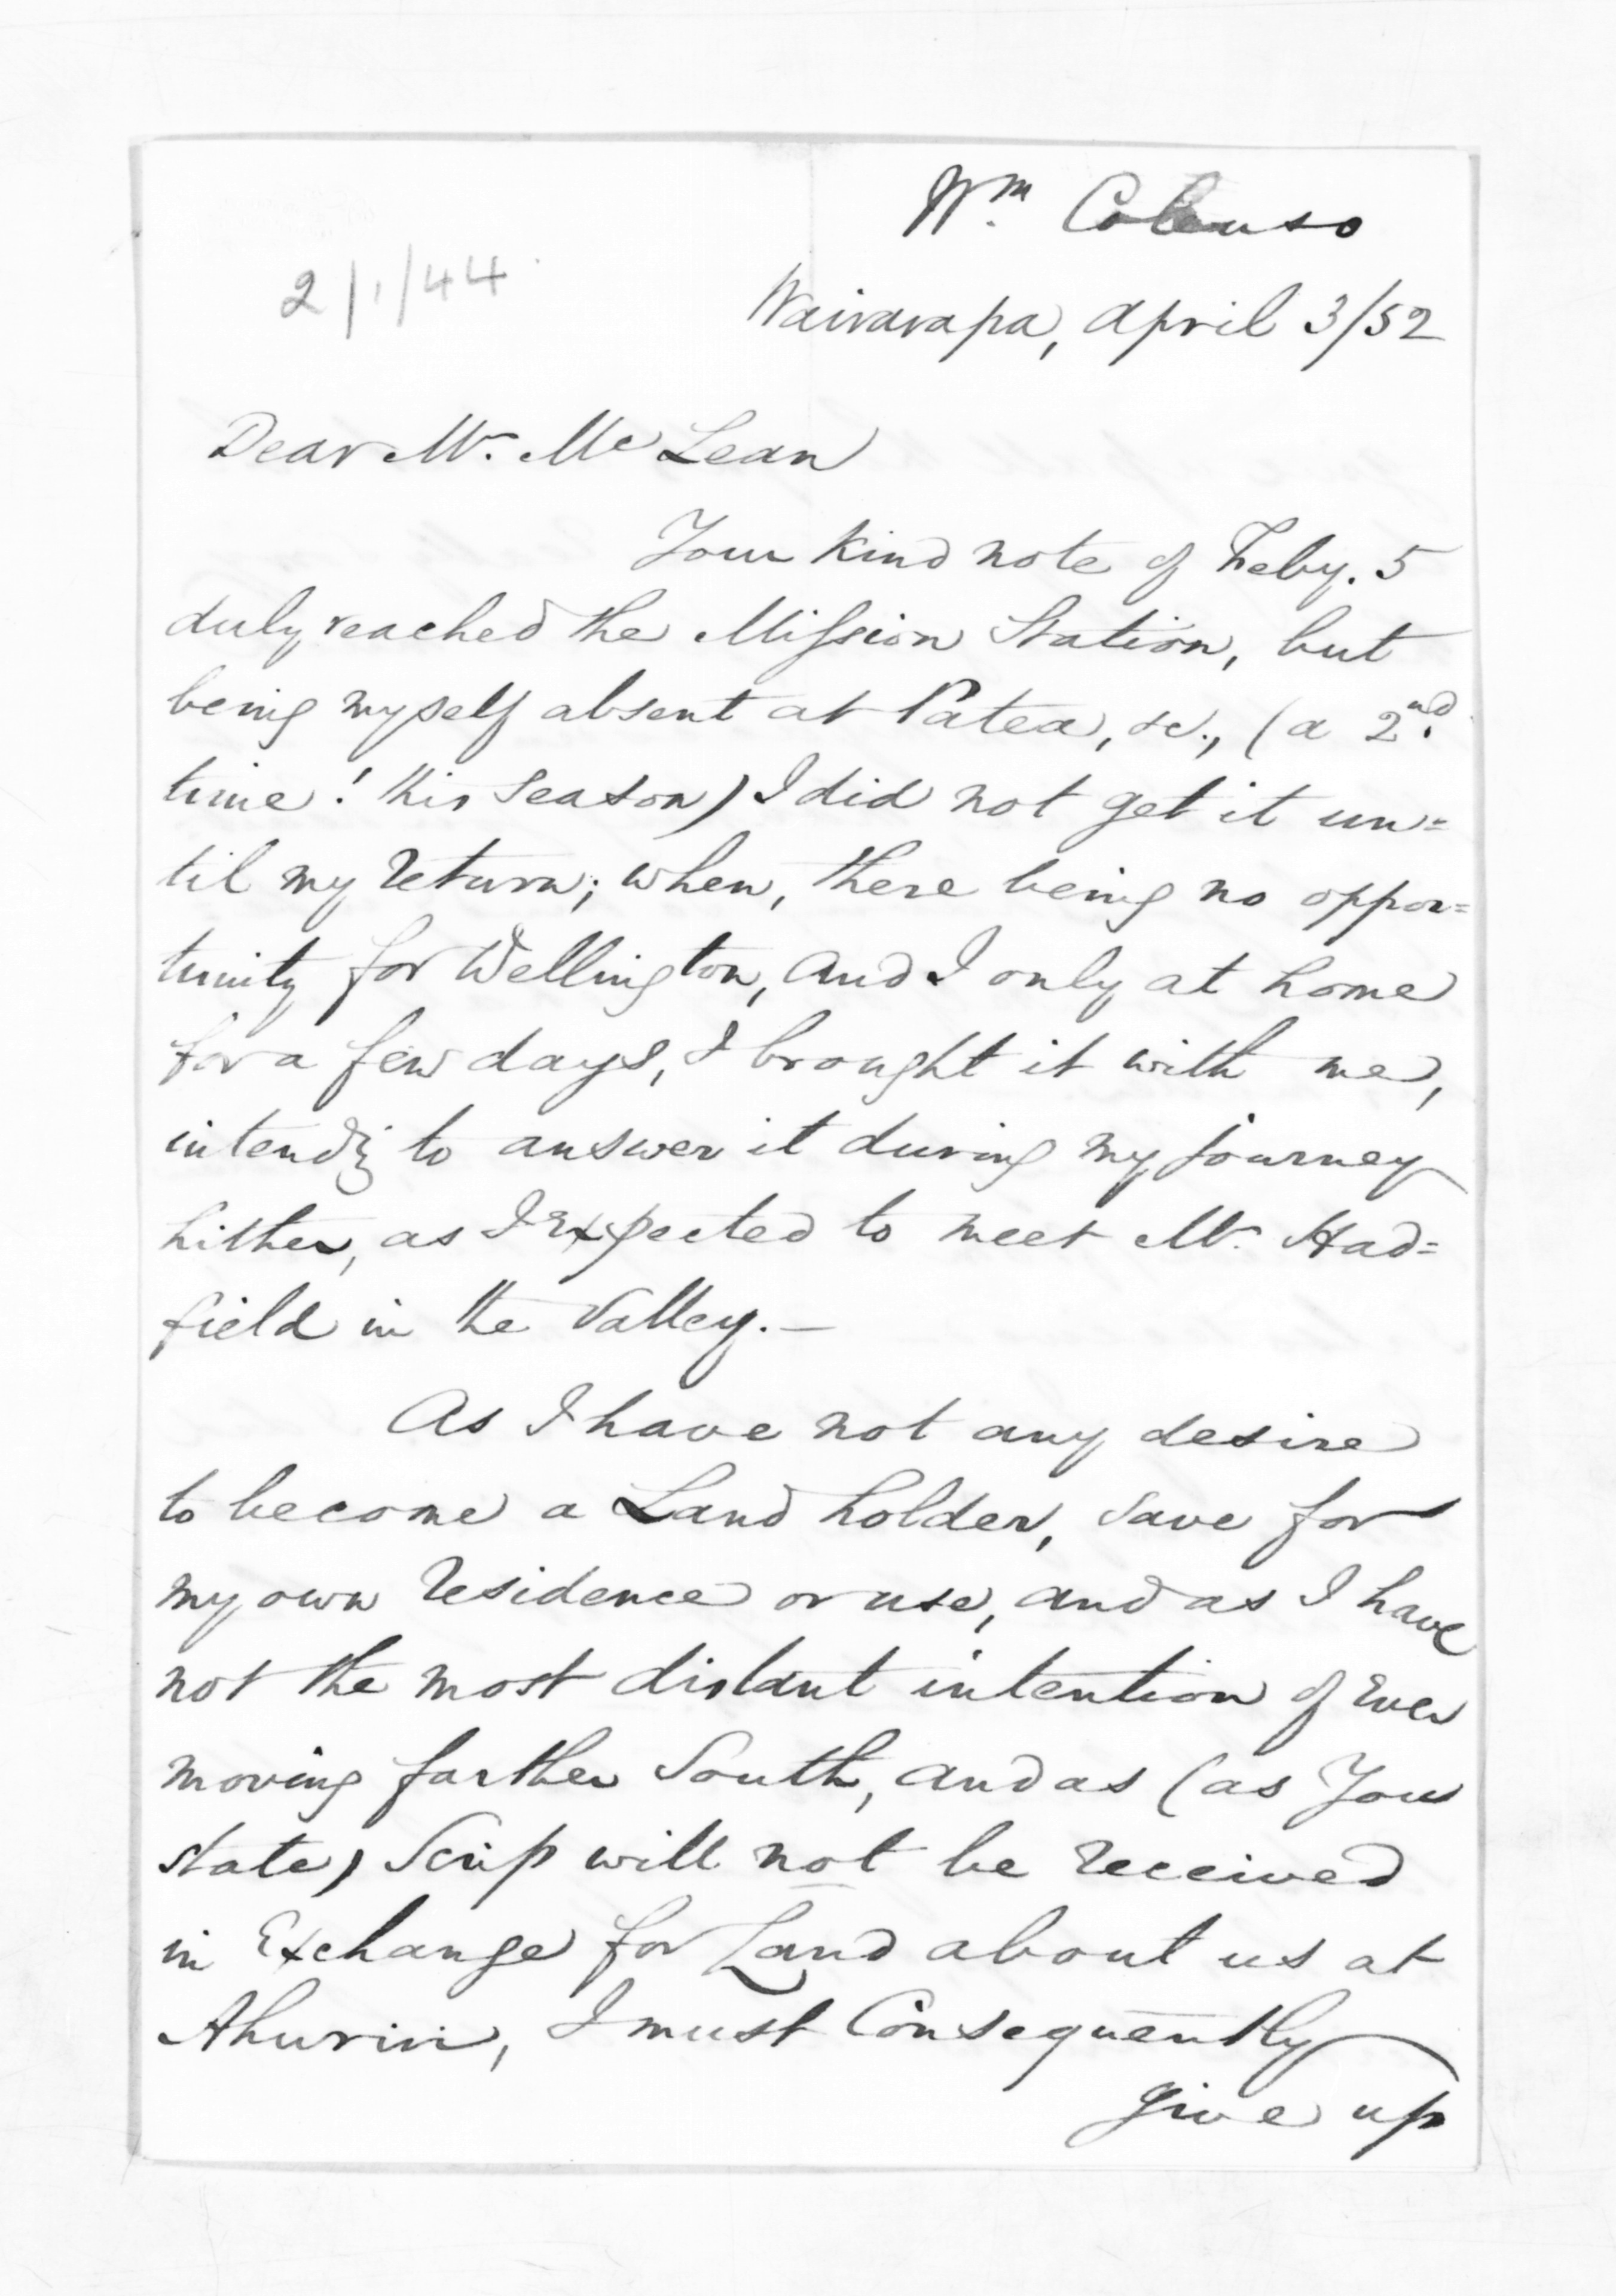 Wm. Colenso
2/1/44
Wairarapa, April 3/52
Dear Mr. McLean
Your kind note of Feby. 5
duly reached the Mission Station, but
being myself absent at Patea, &c., (a 2nd.
time! this season) I did not get it un=
til my return; when, there being no oppor=
tunity for Wellington, and I only at home
for a few days, I brought it with me,
intendg to answer it during my journey
hither, as I expected to meet Mr. Had=
field in the Valley.—
As I have not any desire
to become a Land holder, save for
my own residence or use, and as I have
not the most distant intention of ever
moving farther South, and as (as You
state) Scrip will not be received
in Exchange for Land about us at
Ahuriri, I must Consequently
give up